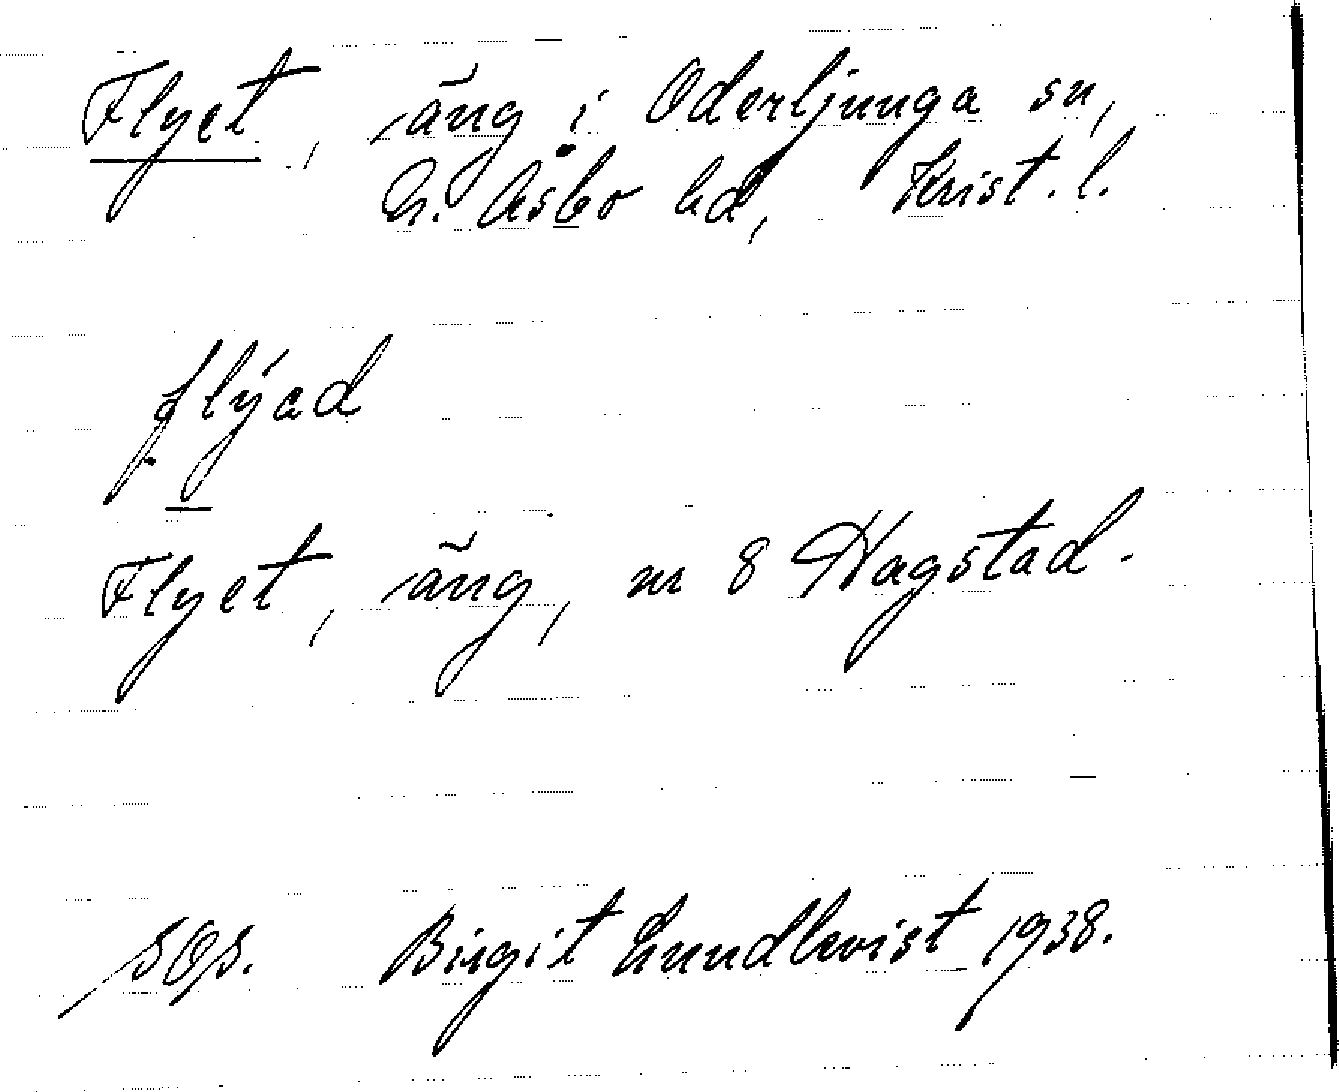 Flyet, äng i Oderljunga sn,
N. Åsbo hd, Krist. l.
flýad
Flyet, äng, nr 8 Hagstad.
SOS. Birgit Lundkvist 1938.